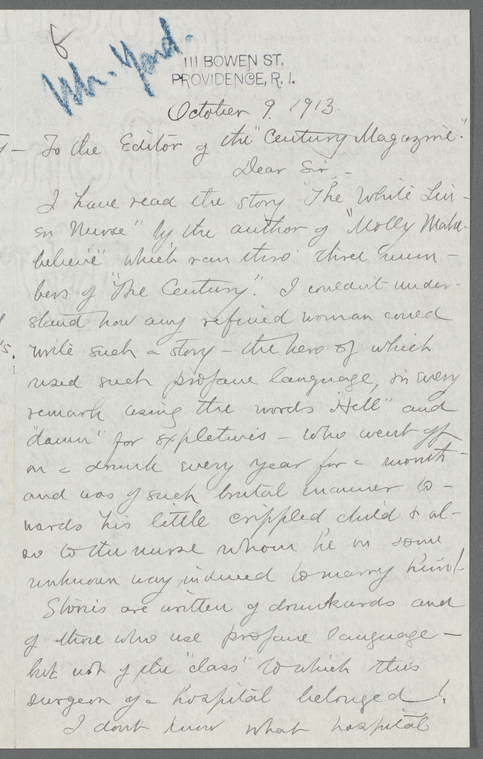 8
Mr. Yard.
111 BOWEN ST.
PROVIDENCE, R. I.
October 9. 1913.
To the Editor of the "Century Magazine".
Dear Sir, -
I have read the story "The White Lin-
en Nurse" by the author of "Molly Make-
believe" which ran thro' three num-
bers of "The Century". I couldn't under-
stand how any refined woman could
write such a story - the hero of which
used such profane language, in every
remark using the words "Hell" and
"damn" for expletives - who went off
on a drunk every year for a month -
and was of such brutal manner to-
wards his little crippled child & al-
so to the nurse whom he in some
unknown way induced to marry him!
Stories are written of drunkards and
of those who use profane language -
but not of the "class" to which this
surgeon of a hospital belonged!
I don't know what hospital